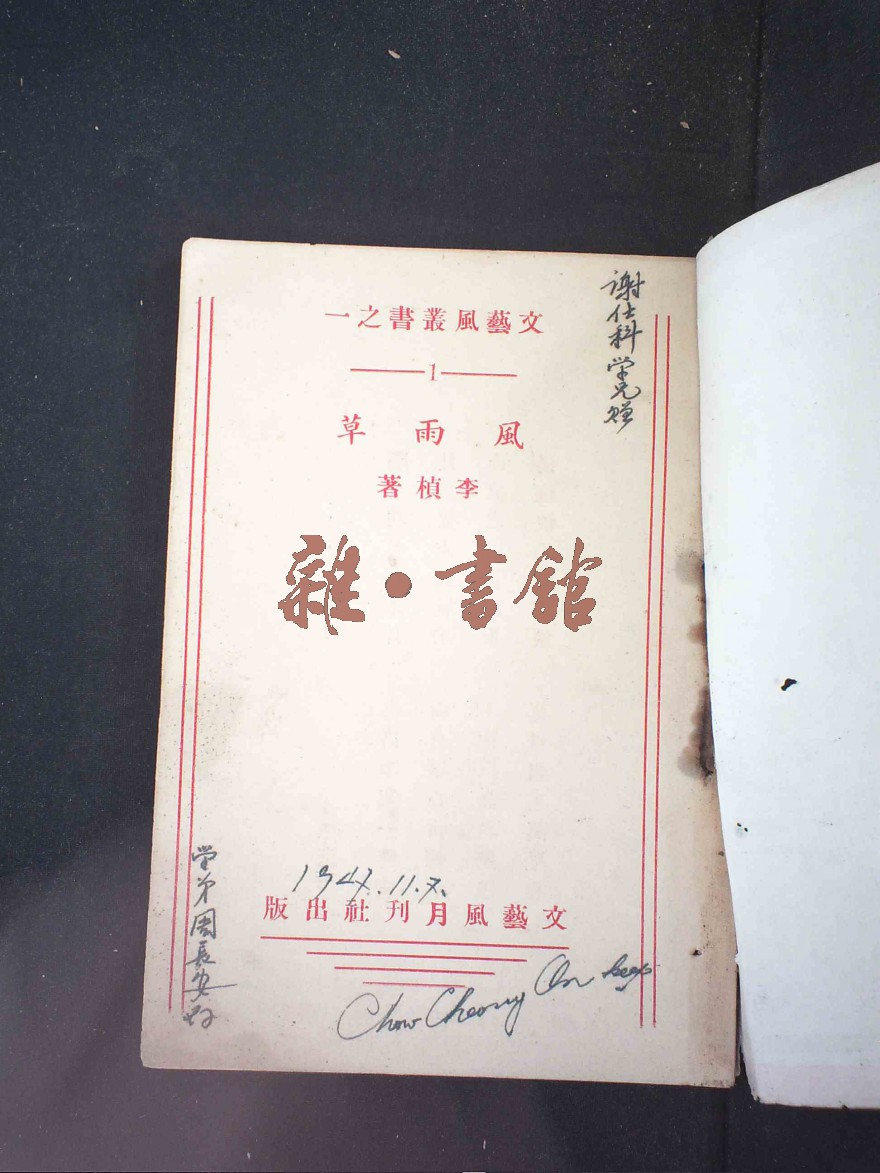 文藝風叢書之一
1
風雨草
李楨著
雜·書館
謝仕科学兄贈
1947.11.7.
文藝風月刊社出版
学弟周長安
Chow Cheong On